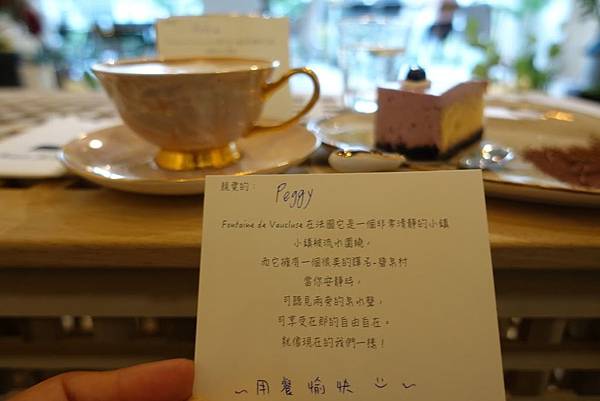 親愛的： Peggy
Fontaine de Vaucluse在法國它是一個非常清靜的小鎮
小鎮被流水圍繞，
而它擁有一個很美的譯名-碧泉村
當你安靜時，
可聽見雨旁的泉水聲，
可享受在那的自由自在。
就像現在的我們一樣！
~用餐愉快 ~